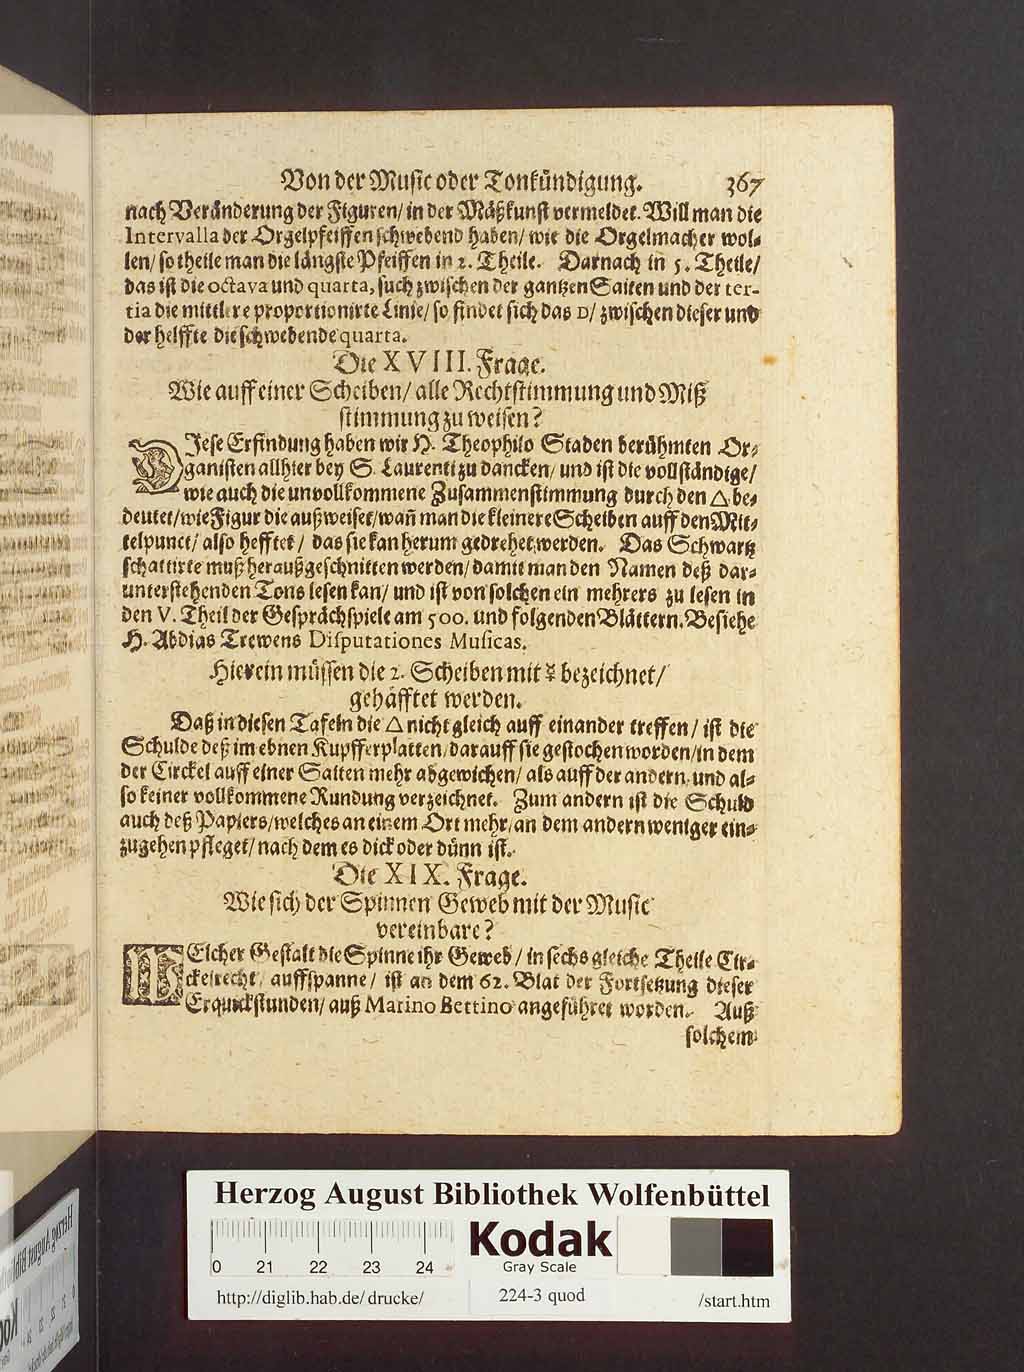 Von der Music oder Tonkündigung. 367
nach Veränderung der Figuren/ in der Mäßkunst vermeldet. Will man die
Intervalla der Orgelpfeiffen schwebend haben/ wie die Orgelmacher wol-
len/ so theile man die längste Pfeiffen in 2. Theile. Darnach in 5. Theile/
das ist die octava und quarta, such zwischen der gantzen Saiten und der ter-
tia die mittlere proportionirte Linie/ so findet sich das D/ zwischen dieser und
der helffte die schwebende quarta.
Die XVIII. Frage.
Wie auff einer Scheiben/ alle Rechtstimmung und Miß
stimmung zu weisen?
DJese Erfindung haben wir H. Theophilo Staden berühmten Or-
ganisten allhier bey S. Laurenti zu dancken/ und ist die vollständige/
wie auch die unvollkommene Zusammenstimmung durch den △ be-
deutet/ wie Figur die außweiset/ wañ man die kleinere Scheiben auff den Mit-
telpunct/ also hefftet/ das sie kan herum gedrehet werden. Das Schwartz
schattirte muß heraußgeschnitten werden/ damit man den Namen deß dar-
unterstehenden Tons lesen kan/ und ist von solchen ein mehrers zu lesen in
den V. Theil der Gesprächspiele am 500. und folgenden Blättern. Besiehe
H. Abdias Trewens Disputationes Musicas.
Hierein müssen die 2. Scheiben mit ☿ bezeichnet/
gehäfftet werden.
Daß in diesen Tafeln die △ nicht gleich auff einander treffen/ ist die
Schulde deß im ebnen Kupfferplatten/ darauff sie gestochen worden/ in dem
der Circkel auff einer Saiten mehr abgewichen/ als auff der andern und al-
so keiner vollkommene Rundung verzeichnet. Zum andern ist die Schuld
auch deß Papiers/ welches an einem Ort mehr/ an dem andern weniger ein-
zugehen pfleget/ nach dem es dick oder dünn ist.
Die XIX. Frage.
Wie sich der Spinnen Geweb mit der Music
vereinbare?
WElcher Gestalt die Spinne ihr Geweb/ in sechs gleiche Theile Cir-
ckelrecht/ auffspanne/ ist an dem 62. Blat der Fortsetzung dieser
Erquickstunden/ auß Marino Bettino angeführet worden. Auß
solchem
Herzog August Bibliothek Wolfenbüttel
0 21 22 23 24
Kodak
Gray Scale
http://diglib.hab.de/drucke/ 224-3 quod /start.htm